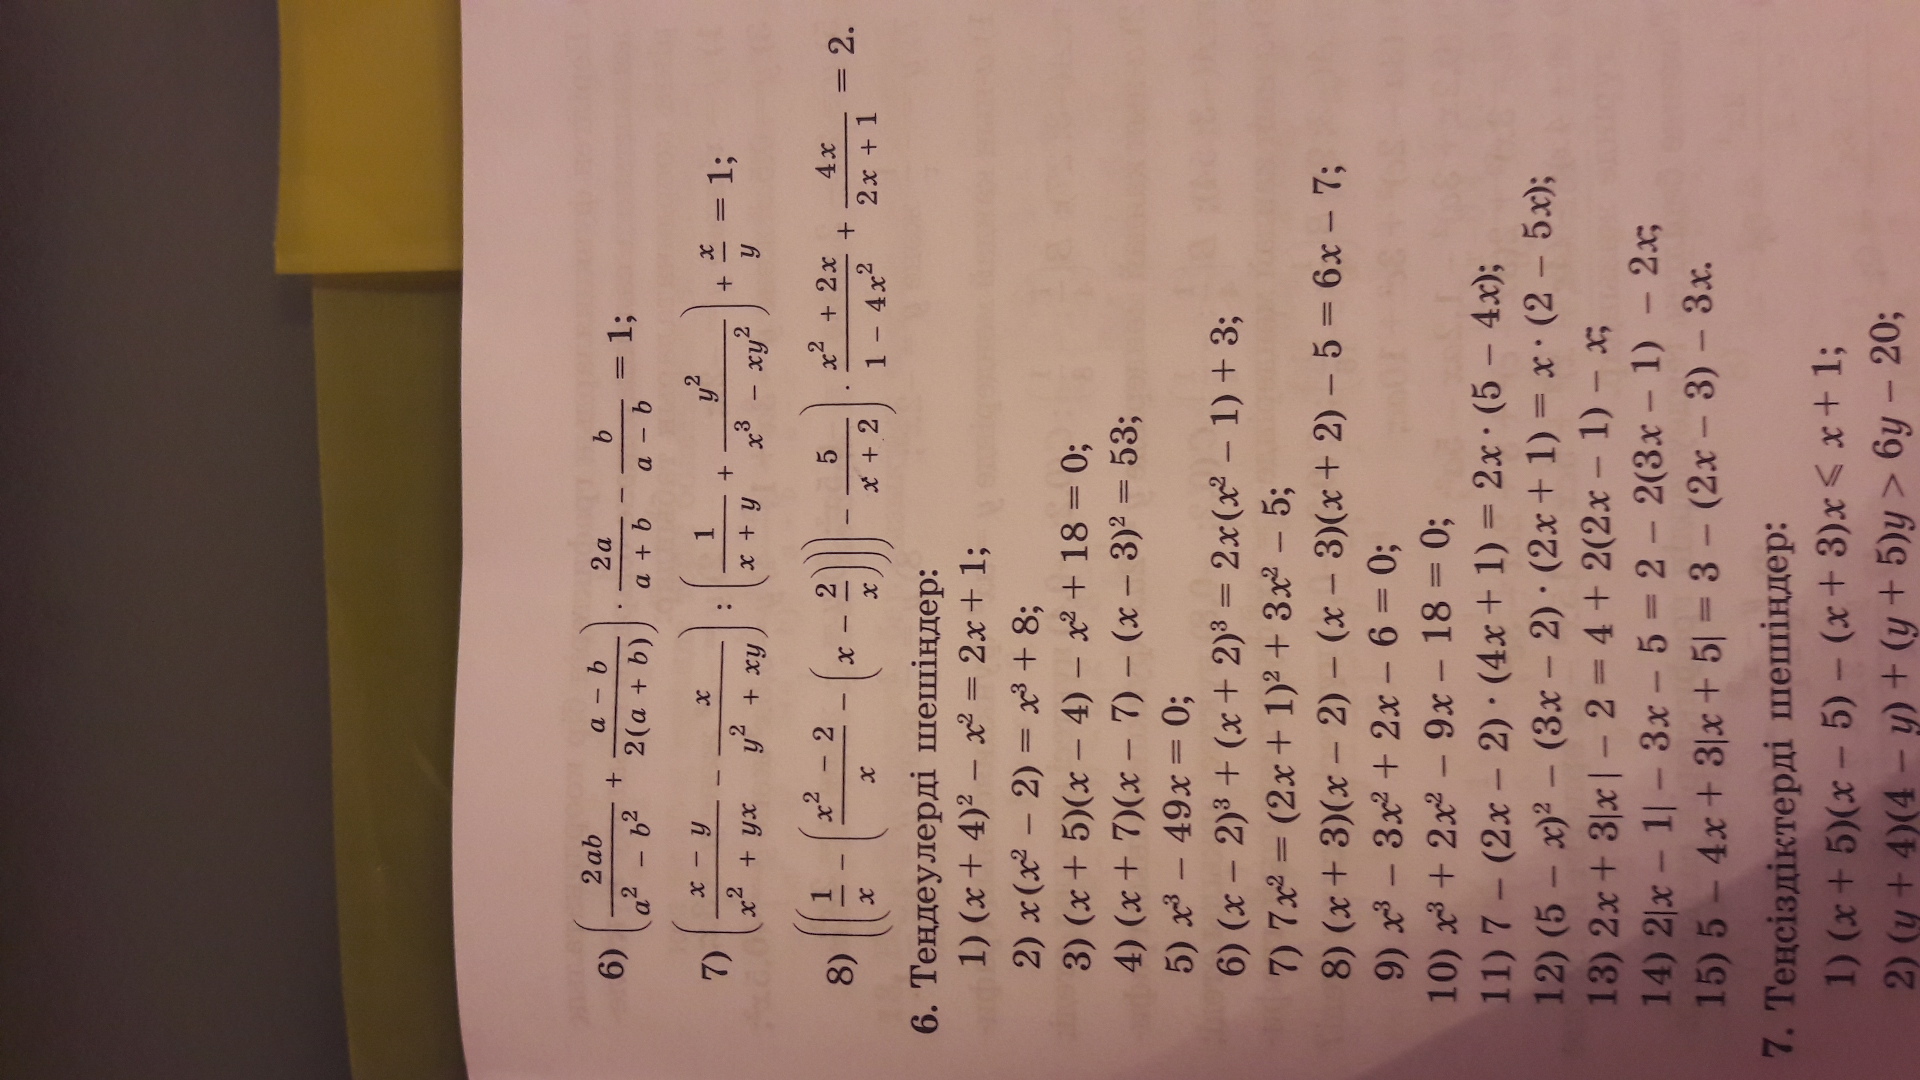 6) (2ab/(a² − b²) + (a − b)/(2(a + b))) · 2a/(a + b) − b/(a − b) = 1;
7) ((x − y)/(x² + yx) − x/(y² + xy)) : (1/(x + y) + y²/(x³ − xy²)) + x/y = 1;
8) (((1/x − ((x² − 2)/x − (x − 2/x)))) − 5/(x + 2)) · (x² + 2x)/(1 − 4x²) + 4x/(2x + 1) = 2.
6. Теңдеулерді шешіңдер:
1) (x + 4)² − x² = 2x + 1;
2) x(x² − 2) = x³ + 8;
3) (x + 5)(x − 4) − x² + 18 = 0;
4) (x + 7)(x − 7) − (x − 3)² = 53;
5) x³ − 49x = 0;
6) (x − 2)³ + (x + 2)³ = 2x(x² − 1) + 3;
7) 7x² = (2x + 1)² + 3x² − 5;
8) (x + 3)(x − 2) − (x − 3)(x + 2) − 5 = 6x − 7;
9) x³ − 3x² + 2x − 6 = 0;
10) x³ + 2x² − 9x − 18 = 0;
11) 7 − (2x − 2) · (4x + 1) = 2x · (5 − 4x);
12) (5 − x)² − (3x − 2) · (2x + 1) = x · (2 − 5x);
13) 2x + 3|x| − 2 = 4 + 2(2x − 1) − x;
14) 2|x − 1| − 3x − 5 = 2 − 2(3x − 1) − 2x;
15) 5 − 4x + 3|x + 5| = 3 − (2x − 3) − 3x.
7. Теңсіздіктерді шешіңдер:
1) (x + 5)(x − 5) − (x + 3)x ⩽ x + 1;
2) (y + 4)(4 − y) + (y + 5)y > 6y − 20;